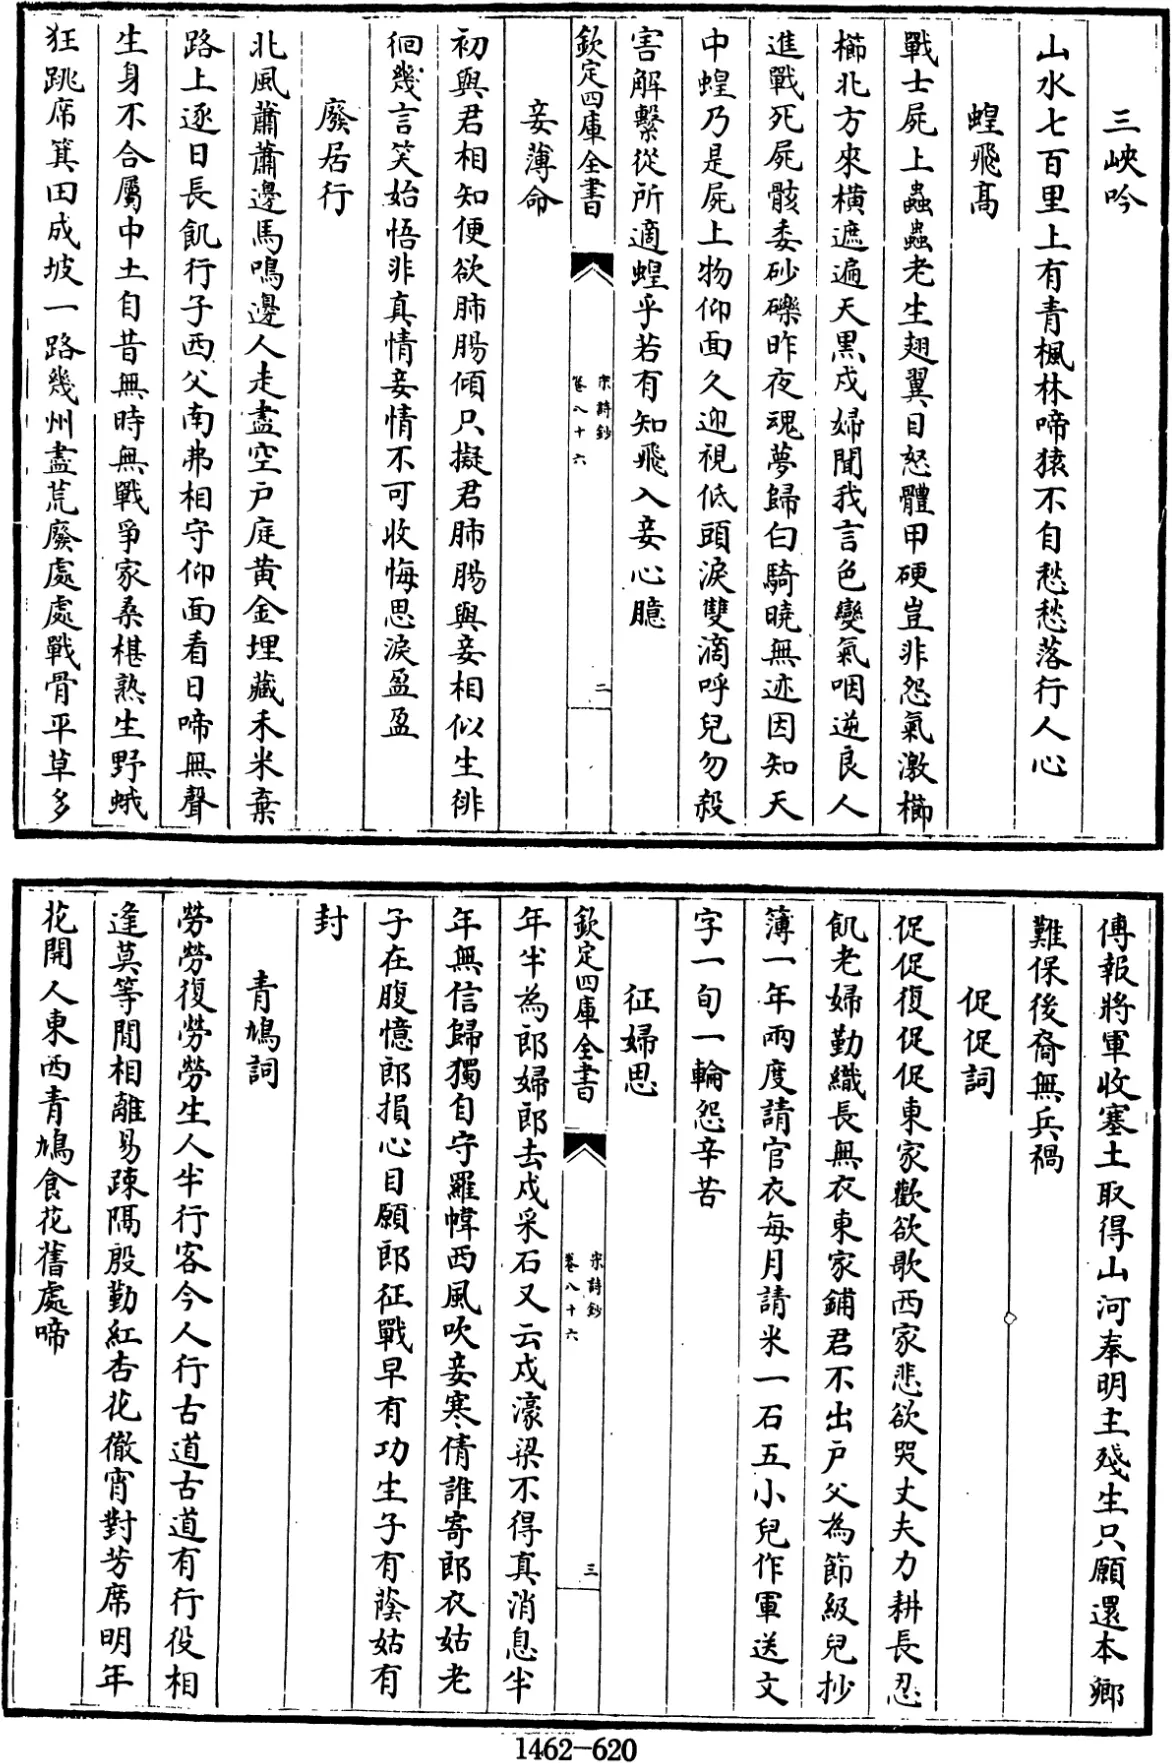 三峽吟
山水七百里上有青楓林啼猿不自愁愁落行人心
蝗飛高
戰士屍上蟲蟲老生翅翼目怒體甲硬豈非怨氣激櫛
櫛北方來橫遮遍天黒戍婦聞我言色變氣咽逆良人
進戰死屍骸委砂礫昨夜魂夢歸白騎曉無迹因知天
中蝗乃是屍上物仰面久迎視低頭淚雙滴呼兒勿殺
害解繫從所適蝗乎若有知飛入妾心臆
欽定四庫全書
宋詩鈔
卷八十六
二
妾薄命
初與君相知便欲肺腸傾只擬君肺腸與妾相似生徘
徊幾言笑始悟非真情妾情不可收悔思淚盈盈
廢居行
北風蕭蕭邊馬鳴邊人走盡空戶庭黄金埋藏禾米棄
路上逐日長飢行子西父南弗相守仰面看日啼無聲
生身不合屬中土自昔無時無戰爭家桑椹熟生野蛾
狂跳席箕田成坡一路幾州盡荒廢處處戰骨平草多
傳報將軍收塞土取得山河奉明主殘生只願還本鄉
難保後裔無兵禍
促促詞
促促復促促東家歡欲歌西家悲欲哭丈夫力耕長忍
飢老婦勤織長無衣東家鋪君不出戶父為節級兒抄
簿一年兩度請官衣每月請米一石五小兒作軍送文
字一旬一輪怨辛苦
征婦思
欽定四庫全書
宋詩鈔
卷八十六
三
年半為郎婦郎去戍采石又云戍濠梁不得真消息半
年無信歸獨自守羅幃西風吹妾寒倩誰寄郎衣姑老
子在腹憶郎損心目願郎征戰早有功生子有蔭姑有
封
青鳩詞
勞勞復勞勞生人半行客今人行古道古道有行役相
逢莫等閒相離易疎隔殷勤紅杏花徹宵對芳席明年
花開人東西青鳩食花舊處啼
1462-620